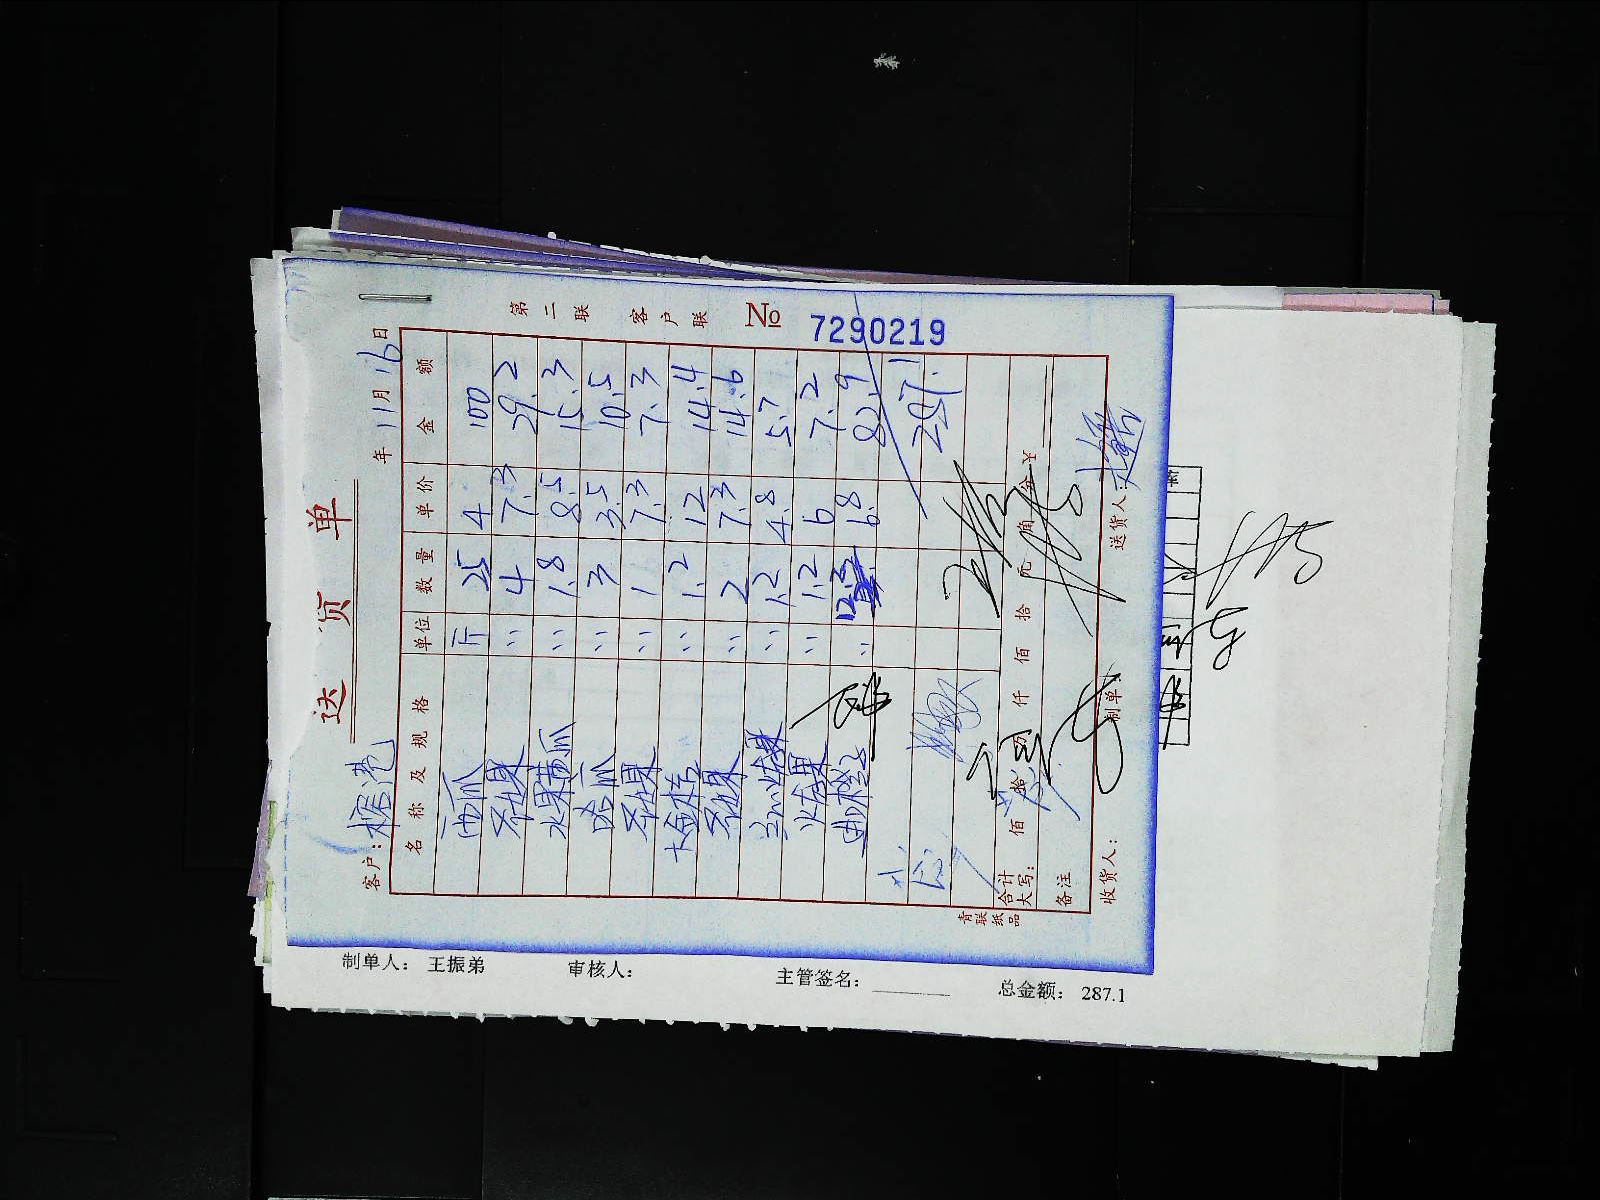 送 货 单
年 11月 16日
第二联 客户联 № 7290219
客户:
名 称 及 规 格 单位 数 量 单 价 金 额
西瓜 斤 25 4 100
奇异果 〃 4 7.3 29.2
水果黄瓜 〃 1.8 8.5 15.3
哈瓜 〃 3 3.5 10.5
奇异果 〃 1 7.3 7.3
〃 1.2 12 14.4
奇异果 〃 2 7.3 14.6
〃 1.2 4.8 5.7
火龙果 〃 1.2 6 7.2
〃 6.8 82.9
287.1
合计大写: 佰 拾 万 仟 佰 拾 元 角 分 ¥
备注
收货人: 制单: 送货人:
青联纸品
制单人: 王振弟 审核人: 主管签名: 总金额: 287.1